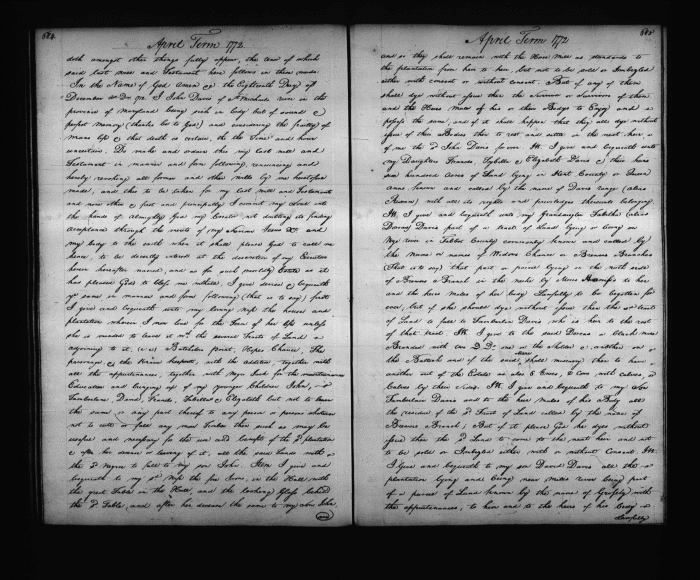 584
April Term 1772
doth amongst other things fully appear, the tenor of which
said last Will and Testament here follows in these words.
In the Name of God Amen the Eighteenth Day of
December I John Davis of St Michaels River in the
province of Maryland being sick in body but of sound &
perfect memory (thanks be to God) and considering the frailty of
mans life & that death is certain, the time and hour
uncertain. Do make and ordain this my last Will and
Testament in manner and form following, renouncing and
hereby revoking all former and other Wills by me heretofore
made, and this to be taken for my last Will and Testament
and none other & first and principally I commit my Soul into
the hands of Almighty God my Creator not doubting its finding
acceptance through the merits of my Saviour Jesus &
my body to the earth when it shall please God to call me
hence, to be decently at the discretion of my Executor
herein hereafter named, and as for such worldly Estate as it
has pleased God to bless me withall. I give devise & bequeath
ye same in manner and form following (that is to say) first
I give and bequeath unto my loving Wife the house and
plantation wherein I now live for the Term of her life unless
she is minded to leave it the several Tracts of Land
adjoining to it, Hopes Chance, The
parsonage & the with the addition, together with
all the appurtenances, together with Negro for the maintenance
Education and bringing up of my younger Children John,
Tamberlane David, Tabitha & Elizabeth but not to lease
the same or any part thereof to any person or persons whatever
not to cutt or fall any more Timber than such as may be
usefull and necessary for the use and benefit of the sd plantation
& after her decease or leaving of it, all the said Lands with
the sd Negro to fall to my son John. Item I give and
bequeath to my sd Wife the in the Hall with
the great Table in the Hall, and the looking Glass behind
the sd Table, and after her decease the same to my son John
585
April Term 1772
and so they shall remain with the House as standards to
the plantation from heir to heir, but not to be sold or Imbezled
either with consent or without consent. But if any of them
shall dye without issue then the Survivor or Survivors of them
and the Heirs Males of his or their Bodys to Enjoy and
possess the same, and if it shall happen that they all dye without
issue of their Bodies then to rest and settle in the next heir
of me the sd John Davis forever. It. I give and bequeath unto
my Daughters & Elizabeth Davis & their heirs
six hundred Acres of Land lying in Kent County or Queen
Anns known and called by the name of Davis range (alias
with all its rights and priviledges thereunto belonging
It. I give and bequeath unto my Grandaughter Tabitha (alias
Davis part of a tract of Land lying & being on
Wye River in Talbot County commonly known and called by
the Name or names of Widows Chance or Brewers Branches
(That is to say) that part or parcel lying on the north side
of Brewers Branch to her
and the heirs Males of her body Lawfully to be begotten for
ever, but if she should dye without issue then the sd tract
of Land to pass to Tamberlane Davis who is heir to the rest
of that tract. It. I give to the said Davis a black mare
Branded with on the shoulder & another on
the Buttock and if the said mare shall miscarry then to have
another out of the Estate as also 2 Ewes, 2 Cows with calves, or
Calves by their sides. It. I give and bequeath to my son
Tamberlane Davis and to the heir Males of his Body all
the residue of the sd Tract of Land called by the name of
Brewers Branch; But if it please God he dyes without
issue then the sd Land to come to the next heir and not
to be sold or Imbezled either with or without Consent. It.
I give and bequeath to my son David Davis all the
plantation lying and being near Miles River being part
of a parcel of Land known by the name of with
the appurtenances, to him and to the heirs of his Body
Lawfully